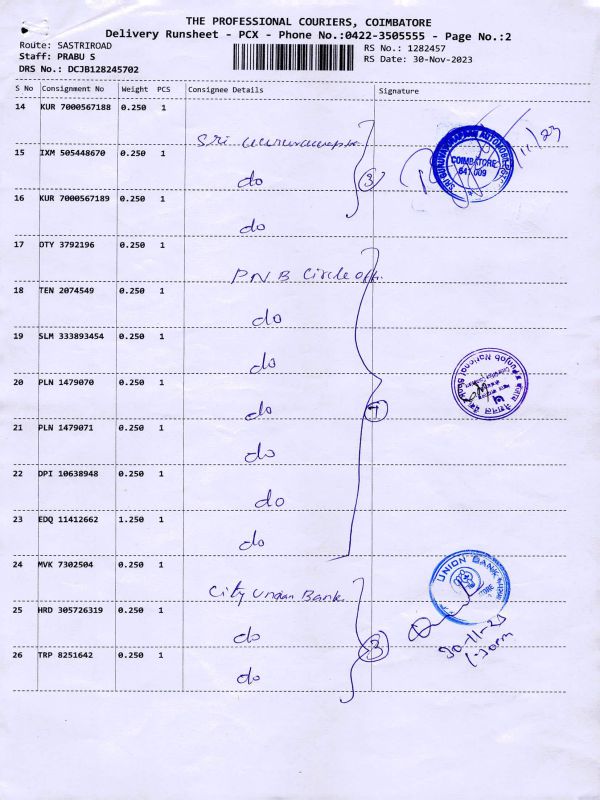 THE PROFESSIONAL COURIERS, COIMBATORE
Delivery Runsheet - PCX - Phone No.:0422-3505555 - Page No.:2
Route: SASTRIROAD
RS No.: 1282457
Staff: PRABU S
RS Date: 30-Nov-2023
DRS No.: DCJB128245702
S No Consignment No Weight PCS Consignee Details Signature
14 KUR 7000567188 0.250 1
Sri
15 IXM 505448670 0.250 1
do
3
COIMBATORE
641 009
16 KUR 7000567189 0.250 1
do
17 DTY 3792196 0.250 1
PNB Circle off.
18 TEN 2074549 0.250 1
do
19 SLM 333893454 0.250 1
do
20 PLN 1479070 0.250 1
do
7
Punjab National Bank
21 PLN 1479071 0.250 1
do
22 DPI 10638948 0.250 1
do
23 EDQ 11412662 1.250 1
do
24 MVK 7302504 0.250 1
City Union Bank
UNION BANK
25 HRD 305726319 0.250 1
do
3
30-11-23
26 TRP 8251642 0.250 1
do